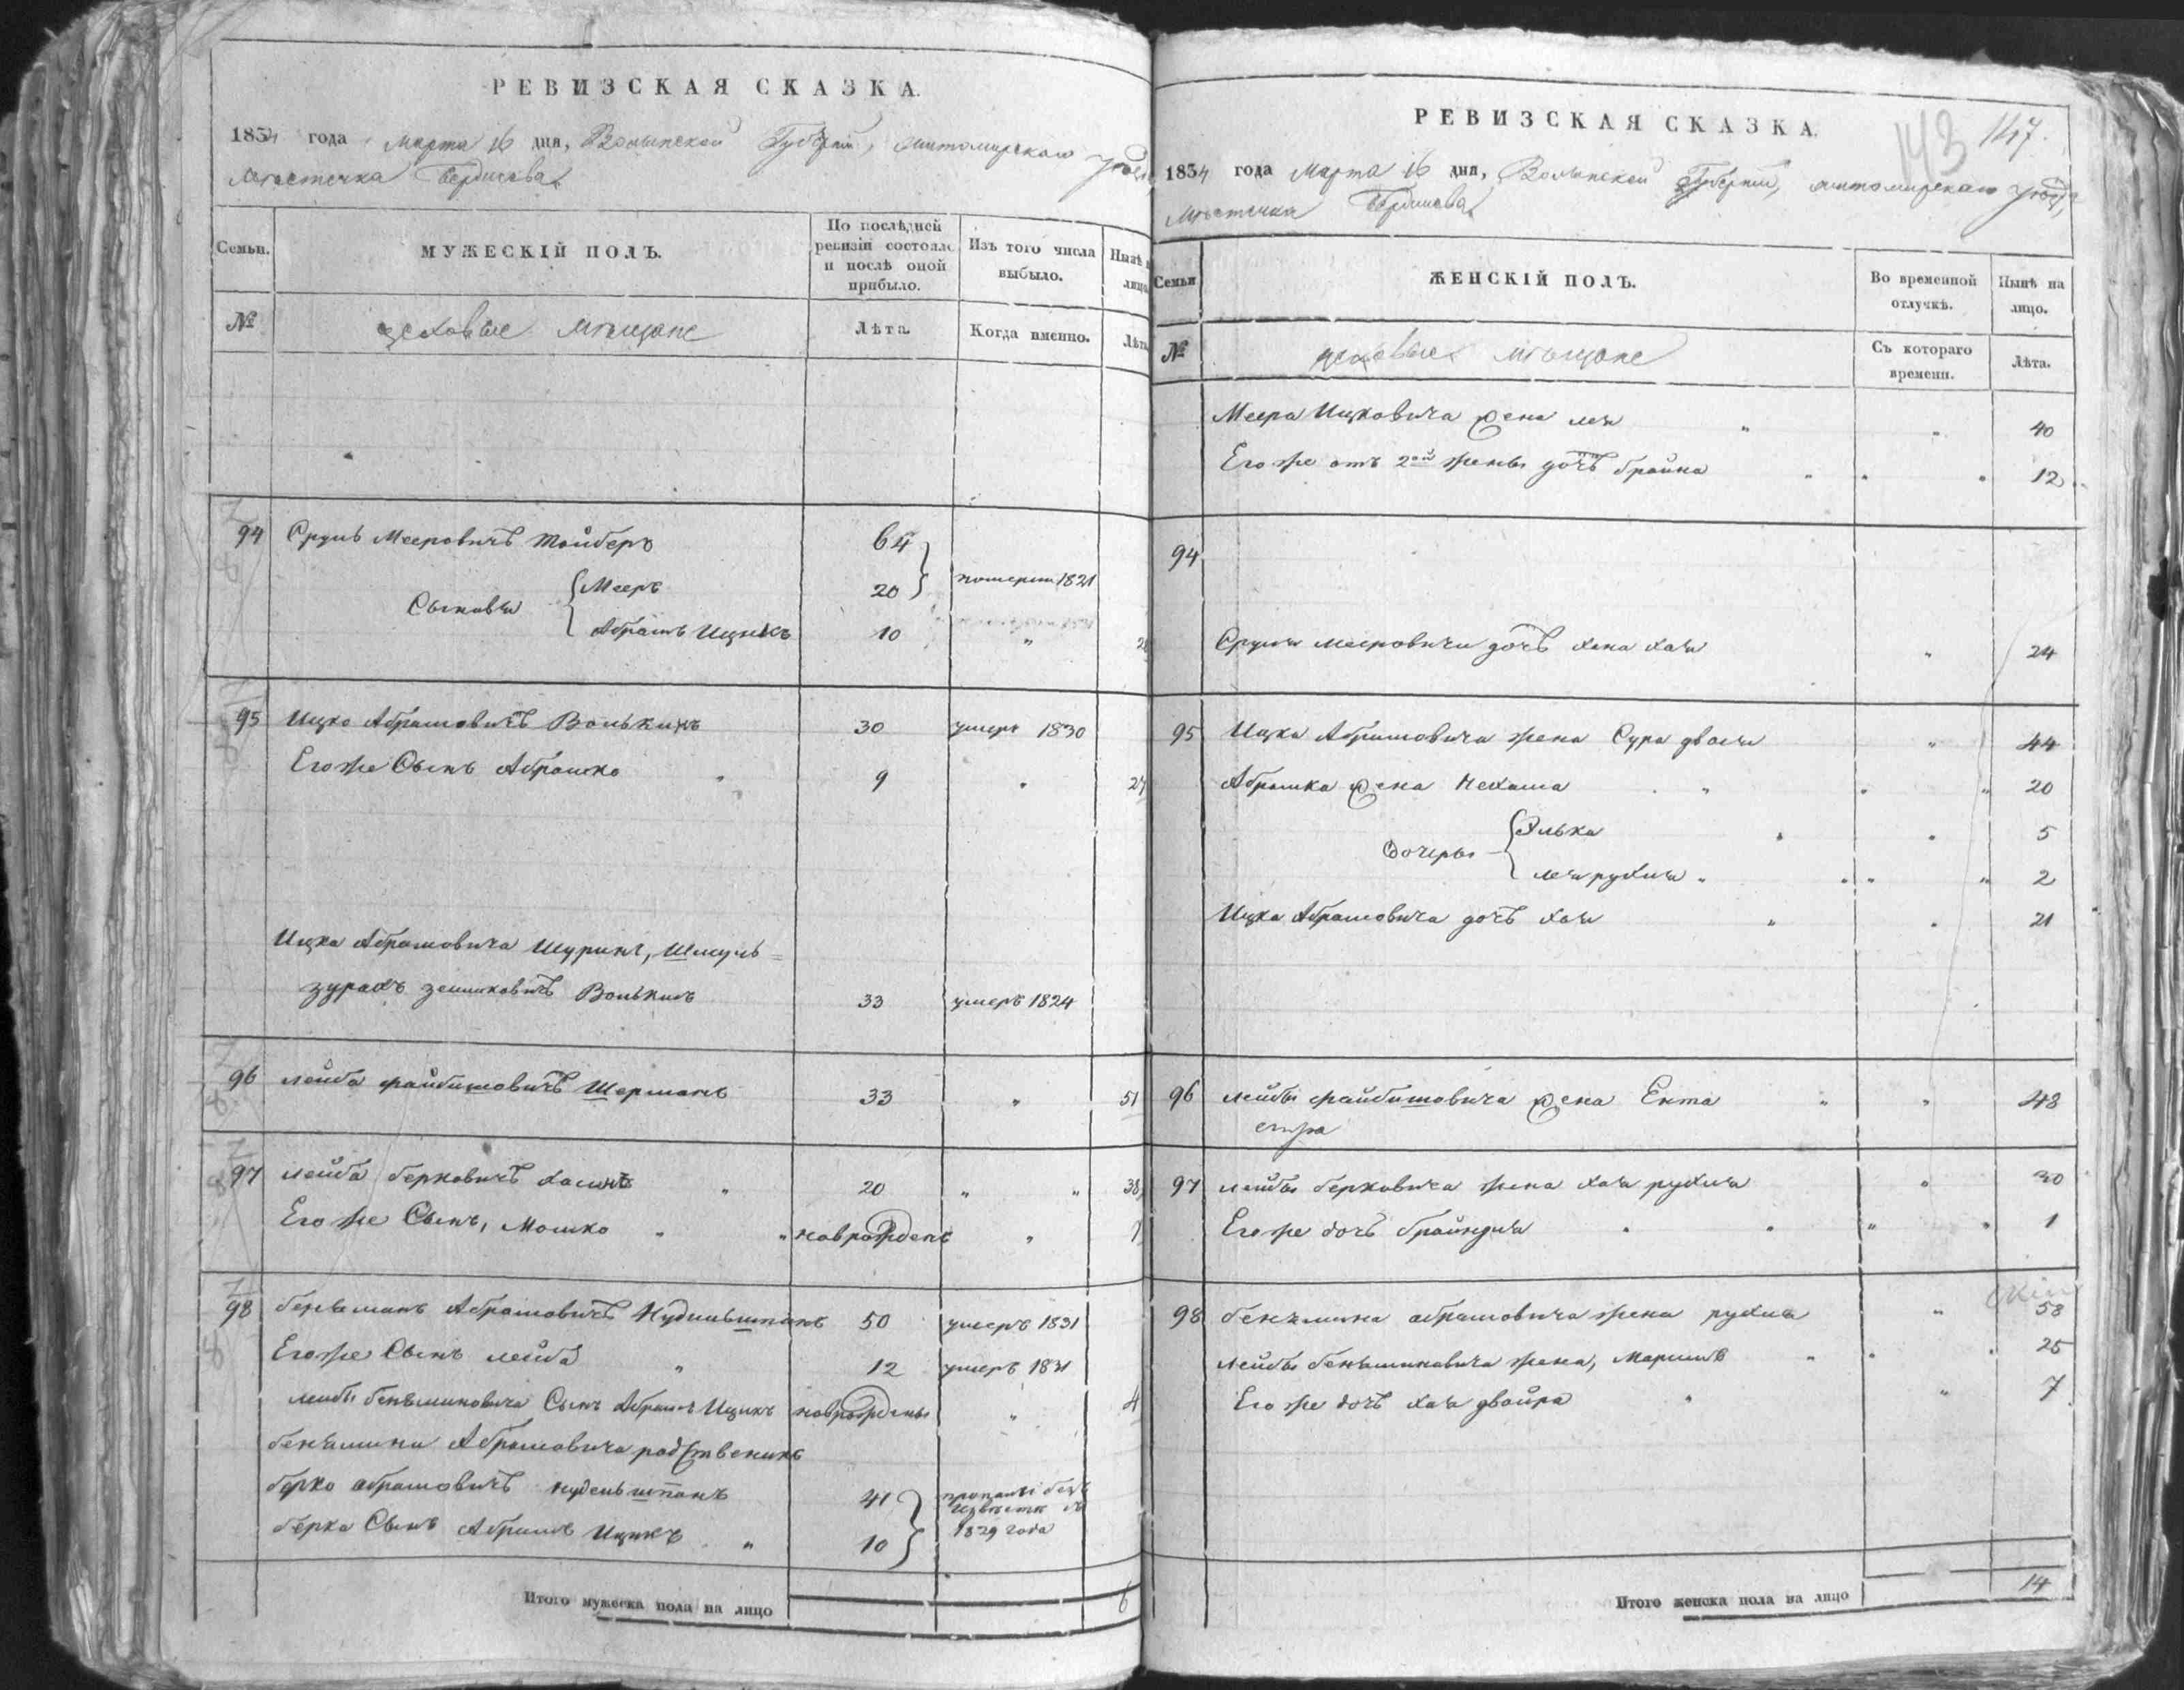 РЕВИЗСКАЯ СКАЗКА.
1834 года Марта 16 дня, Волынской Губерніи, Житомирскаго Уѣзда
Мѣстечка Бердичева
Семьи.
МУЖЕСКІЙ ПОЛЪ.
По послѣдней ревизіи состояло и послѣ оной прибыло.
Изъ того числа выбыло.
Нынѣ
лицо
№
цеховые мѣщане
Лѣта.
Когда именно.
Лѣта
94 Сруль Мееровичъ Тойберъ 64
Сыновья Мееръ 20 померли 1821
Абрамъ Ицикъ 10 "
95 Ицко Абрамовичъ Волькинъ 30 умеръ 1830
Его же Сынъ Абрашко " 9 "
Ицка Абрамовича Шуринъ, Шмуль=
зурахъ Волькинъ 33 умеръ 1824
96 лейба файбишовичъ Шерманъ 33 " 51
97 лейба берковичъ " 20 " " 38
Его же Сынъ, Мошко " " новрожденъ "
98 беньяминъ Абрамовичъ 50 умеръ 1831
Его же Сынъ лейба " 12 умеръ 1831
лейбы беньяминовича Сынъ Абрамъ Ицикъ новрожденъ " 4
беньямина Абрамовича родственикъ
берко абрамовичъ 41
берка Сынъ Абрамъ Ицикъ " 10
1829 года
Итого мужеска пола на лицо 6
РЕВИЗСКАЯ СКАЗКА.
143 147.
1834 года Марта 16 дня, Волынской Губерніи, Житомирскаго Уѣзда,
Мѣстечка Бердичева
Семьи
ЖЕНСКІЙ ПОЛЪ.
Во временной отлучкѣ.
Нынѣ на лицо.
№
цеховые мѣщане
Съ котораго времени.
Лѣта.
Меера Ицковича жена лея " " 40
Его же отъ 2ой жены дочь брайна " " " 12
94
Сруля Мееровича дочь хана хая " 24
95 Ицка Абрамовича жена Сура двося " 44
Абрашка жена Нехама " " " 20
Дочеры Элька " " 5
лея рухля " " " " 2
Ицка Абрамовича дочь хая " " 21
96 лейбы файбишовича жена Ента " " 48
97 лейбы берковича жена хая рухля " 30
Его же дочь брайндля " " " " 1
98 беньямина абрамовича жена рухля " 58
лейбы беньяминовича жена, Маримъ " " " 25
Его же дочь хая двойра " " 7
Итого женска пола на лицо 14